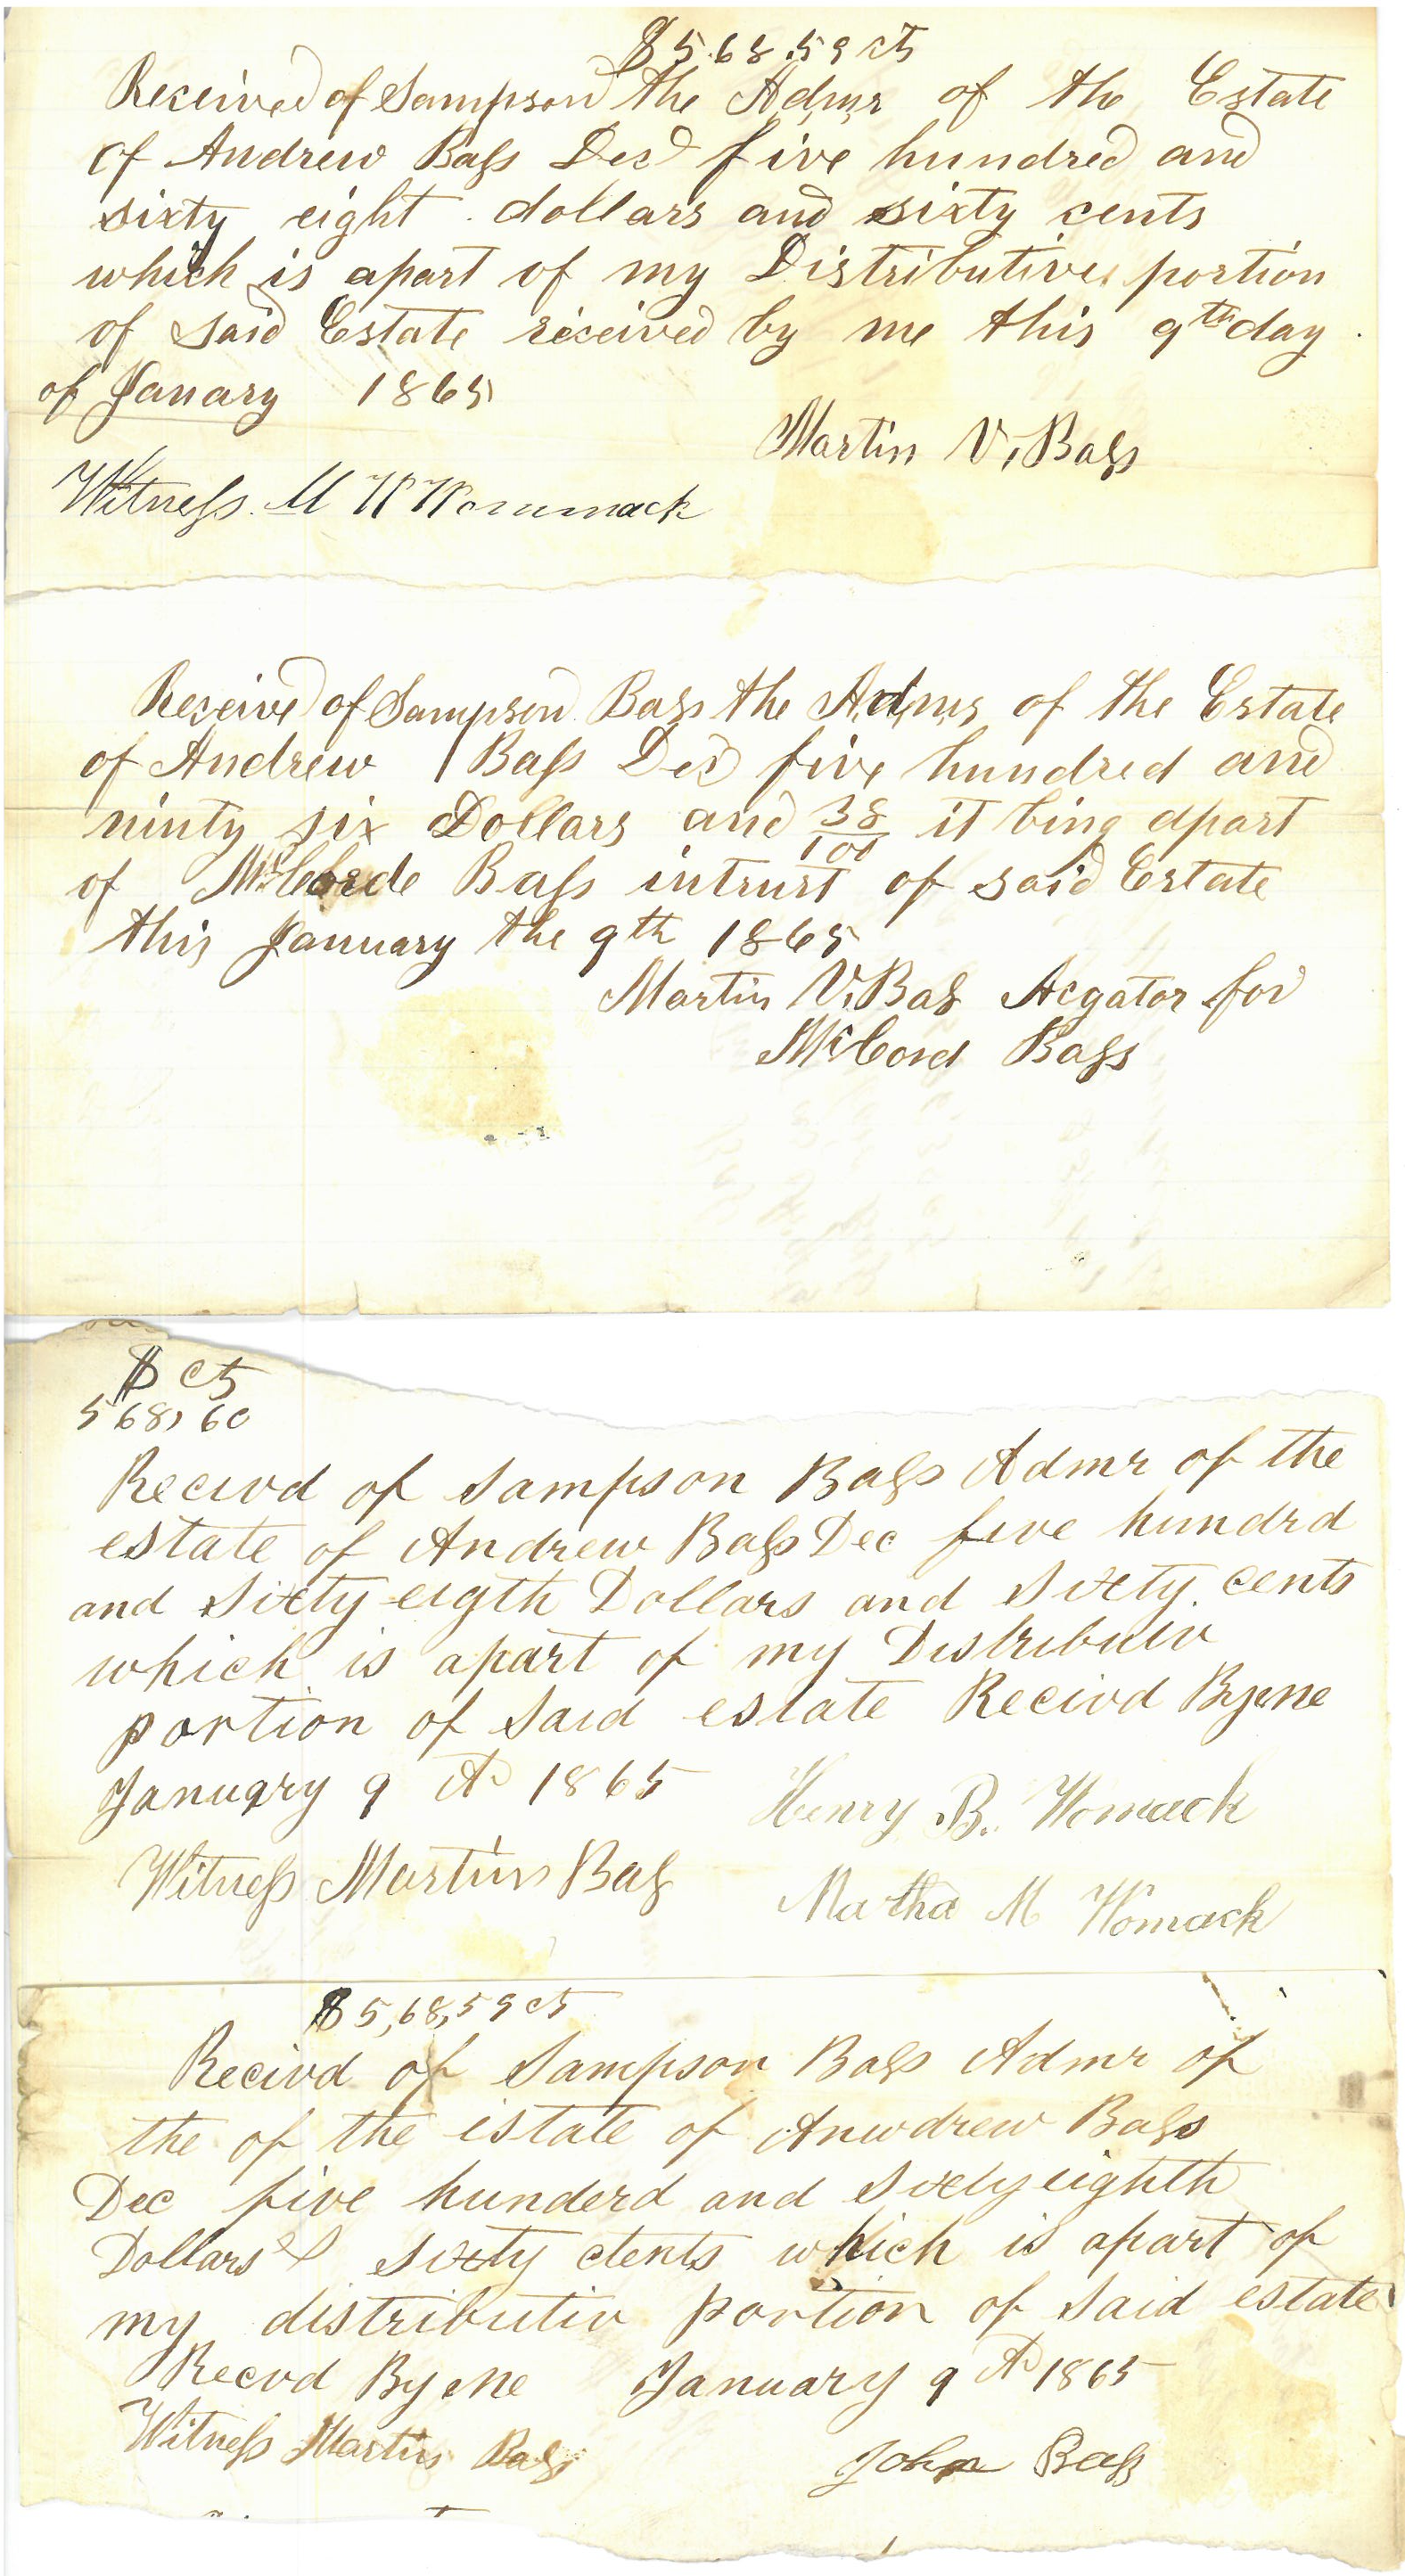 $568.59 cts
Received of Sampson the Admr of the Estate
of Andrew Bass Decd five hundred and
sixty eight dollars and sixty cents
which is apart of my Distributive portion
of said Estate received by me this 9th day
of Janary 1865
Martin V. Bass
Witness M W Wommack
Received of Sampson Bass the Admr of the Estate
of Andrew Bass Decd five hundred and
ninty six Dollars and 38/100 it bing apart
of McCorde Bass intrust of said Estate
this January the 9th 1865
Martin V. Bass Acgator for
McCord Bass
$ cts
568,60
Recivd of Sampson Bass Admr of the
estate of Andrew Bass Dec five hundrd
and Sixty-eigth Dollars and Sixty cents
which is apart of my Distributiv
portion of Said estate Recivd By me
January 9 AD 1865
Henry B. Womack
Witness Martin Bass
Martha M Womack
$5,68,59 cts
Recivd of Sampson Bass Admr of
the of the estate of Anwdrew Bass
Dec five hunderd and Sixtyeighth
Dollars & Sixty ctents which is apart of
my distributiv portion of Said estate
Recvd By Me January 9 AD 1865
Witness Martin Bass
John Bass